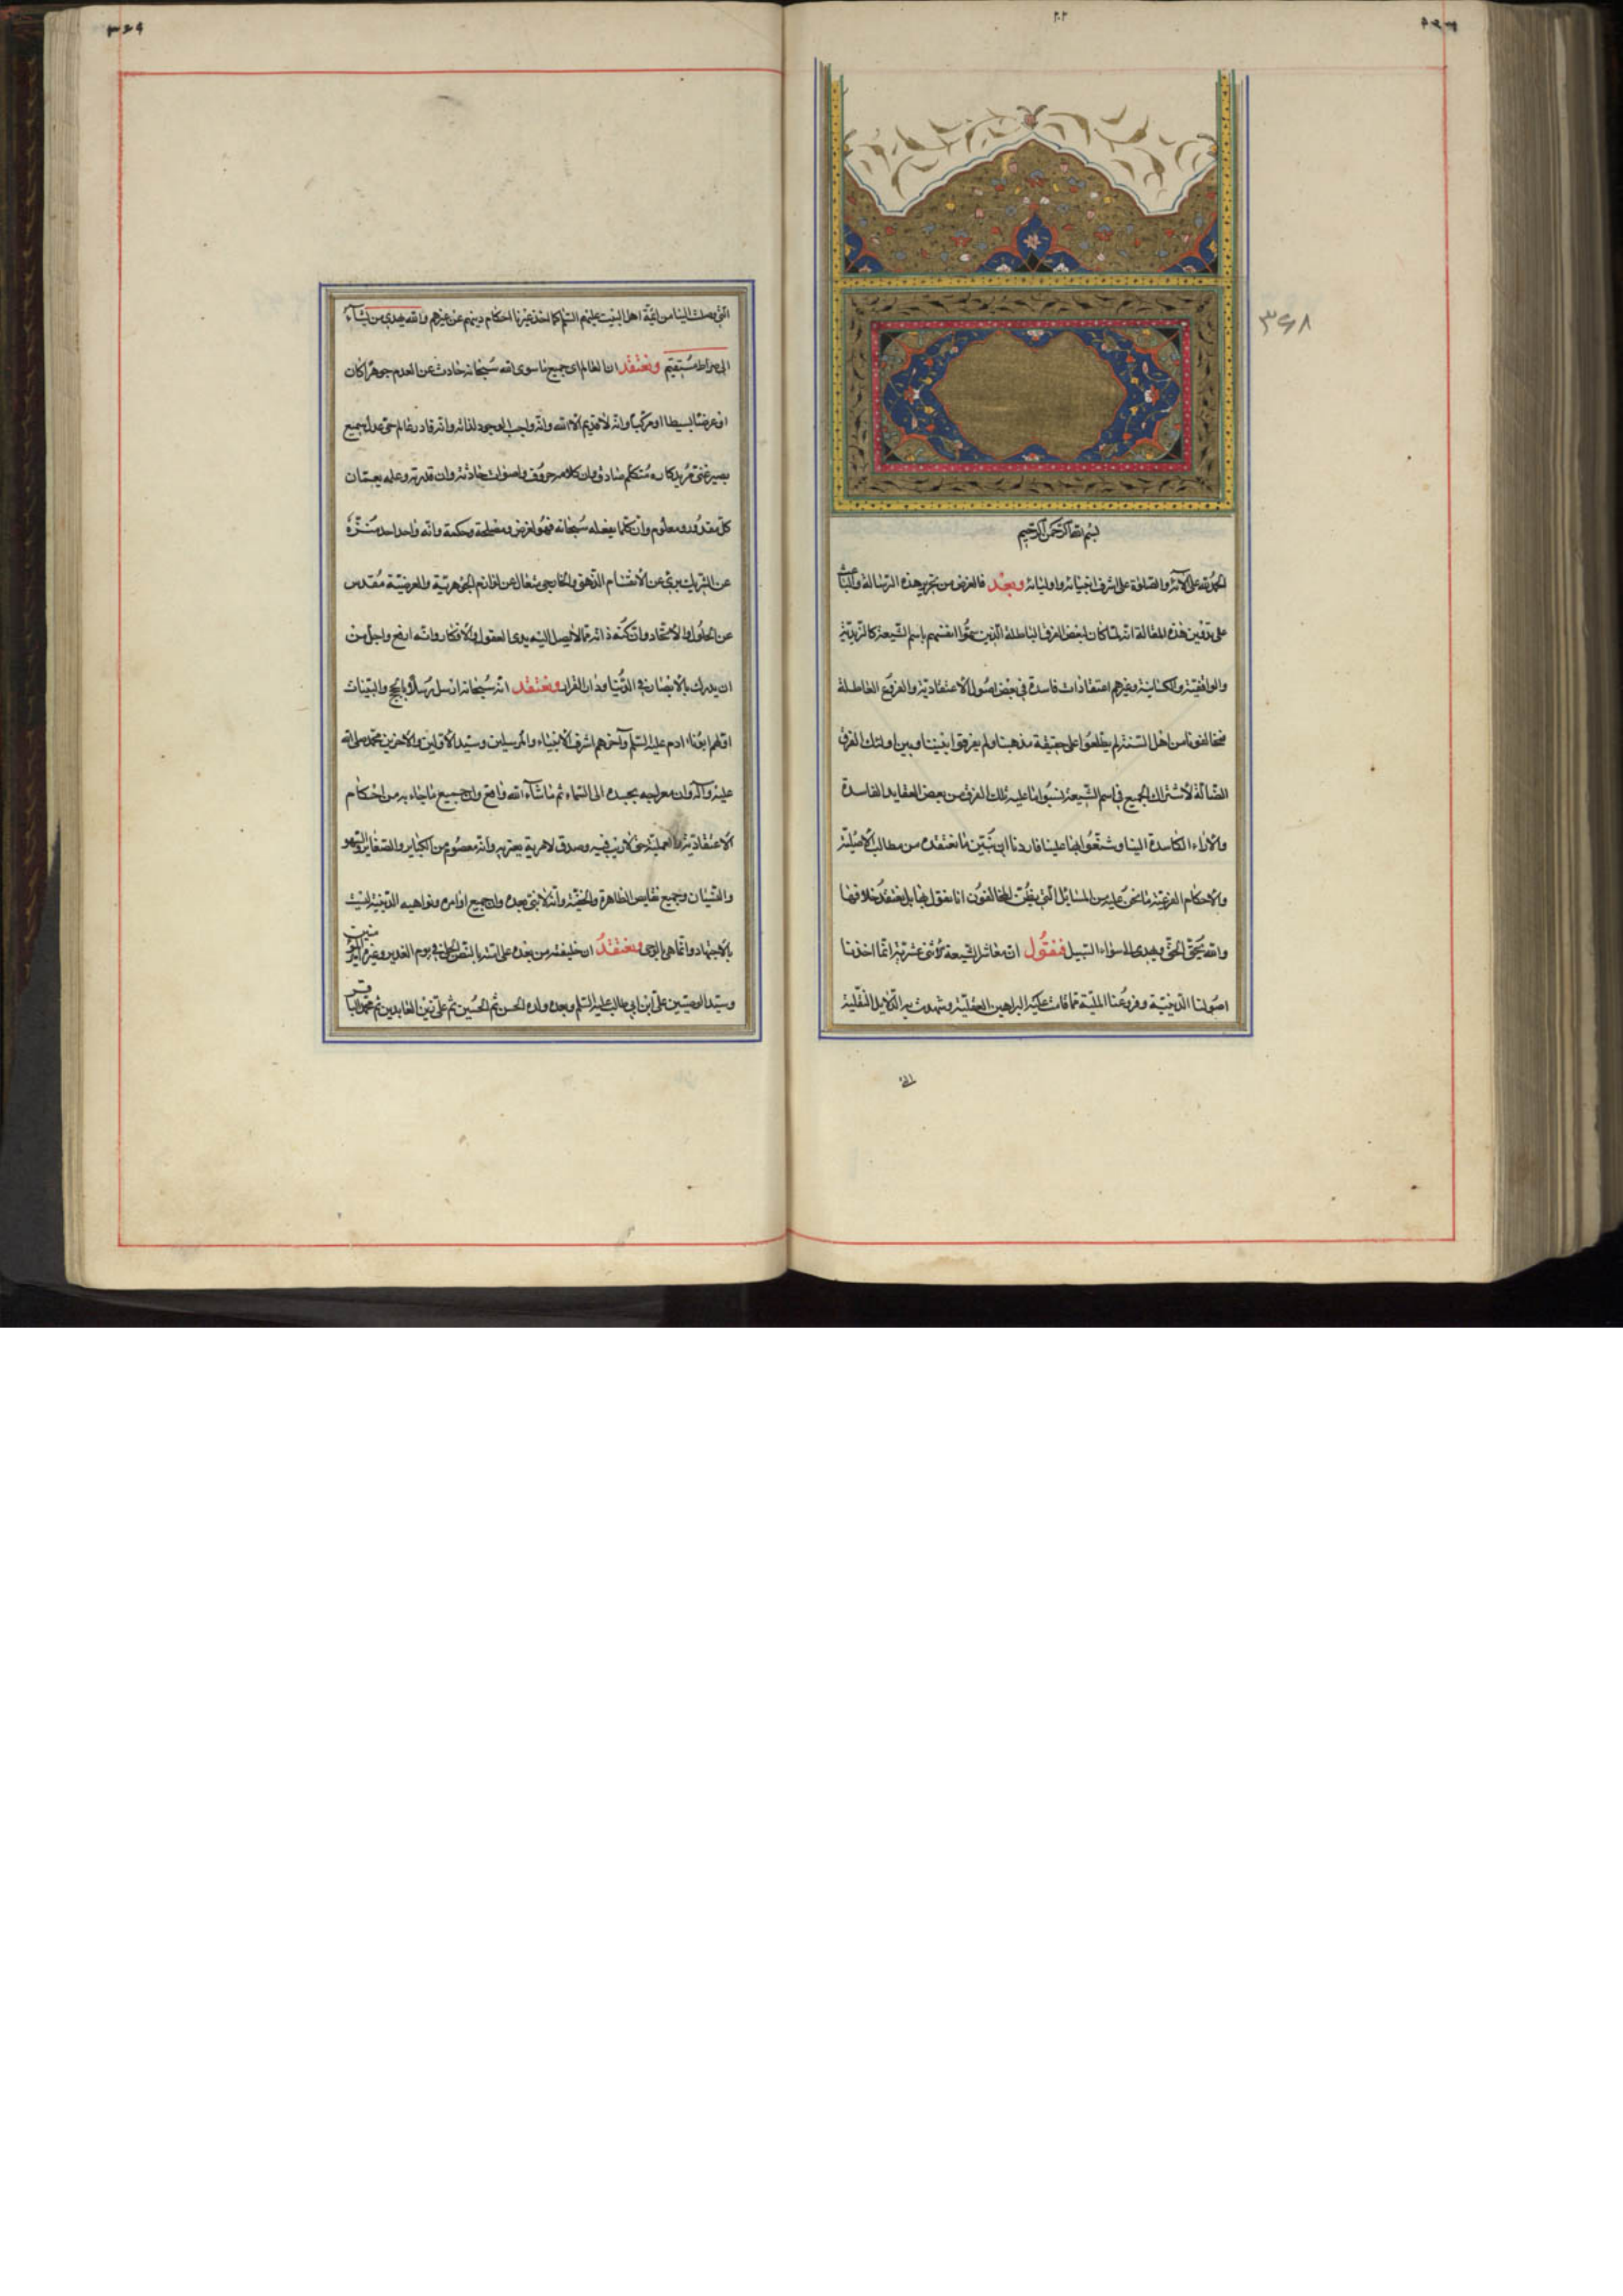 بسم الله الرحمن الرحيم
الحمد لله على آلائه والصلوة على اشرف انبيائه واوليائه وبعد فالغرض من تحرير هذه الرسالة والباعث
على تدقين هذه المقالة انه لما كان لبعض الفرق الباطلة الذين سموا انفسهم باسم الشيعة كالزيدية
والواقفية والكيسانية وغيرهم اعتقادات فاسدة في بعض اصول الاعتقادية والفروع العاطلة
مخالفونا من اهل السنة لم يطلعوا على حقيقة مذهبنا ولم يفرقوا بيننا وبين اولئك الفرق
الضالة لاشتراك الجميع في اسم الشيعة نسبوا ما عليه تلك الفرق من بعض العقايد الفاسدة
والآراء الكاسدة الينا وشنعوا بها علينا فاردنا ان نبين ما نعتقده من مطالب الاصلية
والاحكام الفرعية ما نحن عليه من المسائل التي يظن المخالفون انا نقول بها بل نعتقد خلافها
والله يحق الحق ويهدي الى سواء السبيل فنقول انا معاشر الشيعة الاثنى عشرية انما اخذنا
اصولنا الدينية وفروعنا الملية مما قامت عليه البراهين العقلية وشهدت به الدلايل النقلية
التي وصلت الينا من ائمة اهل البيت عليهم السلم كما اخذ غيرنا احكام دينهم عن غيرهم والله يهدي من يشآء
الى صراط مستقيم ونعتقد ان العالم اى جميع ما سوى الله سبحانه حادث عن العدم جوهرا كان
او عرضا بسيطا او مركبا وانه لا قديم الا الله وانه واجب الوجود لذاته وانه قادر عالم حي عدل سميع
بصير غني مريد كاره متكلم صادق وان كلامه حروف واصوات حادثة وان قدرته وعلمه يعمان
كل مقدور ومعلوم وان كلما يفعله سبحانه فهو لغرض ومصلحة وحكمة وانه واحد احد منزه
عن الشريك بريء عن الانقسام الذهني والخارجي متعال عن لوازم الجوهرية والعرضية مقدس
عن الحلول والاتحاد وان كنه ذاته مما لا يصل اليه يدى العقول والافكار وانه ارفع واجل من
ان يدرك بالابصار في الدنيا ودار القرار ونعتقد انه سبحانه ارسل رسلا بالحجج والبينات
اولهم ابونا ادم عليه السلم وآخرهم اشرف الانبياء والمرسلين وسيد الاولين والاخرين محمد صلى الله
عليه وآله وان معراجه بجسده الى السماء ثم ما شآء الله واقع وان جميع ما جاء به من احكام
الاعتقادية والعملية حق لا ريب فيه وصدق لا مرية يعتريه وانه معصوم من الكباير والصغاير والسهو
والنسيان وجميع نقايص الظاهرة والخفية وانه لا نبي بعده وان جميع اوامره ونواهيه الدينية ليست
بالاجتهاد وانما هي بالوحى ونعتقد ان خليفته من بعده على امته بالنص الجلي في يوم الغدير وغيره امير المؤمنين
وسيد الوصيين على ابن ابي طالب عليه السلم وبعده ولده الحسن ثم الحسين ثم علي زين العابدين ثم محمد الباقر
٣٤٨